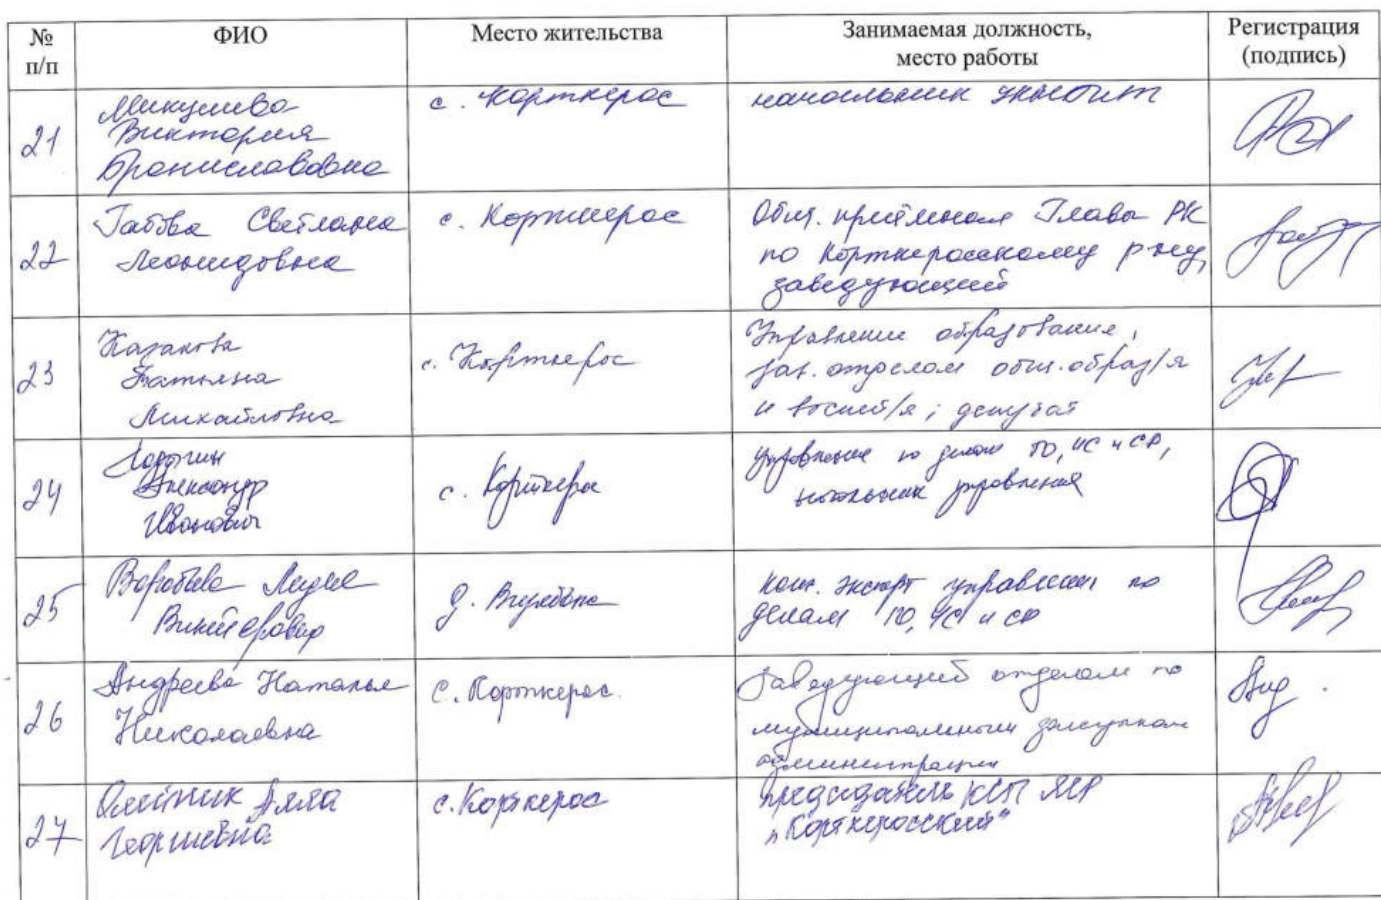 № п/п
ФИО
Место жительства
Занимаемая должность,
место работы
Регистрация
(подпись)
21
Микушева
Виктория
Брониславовна
с. Корткерос
начальник
22
Габова Светлана
Леонидовна
с. Корткерос
Общ. приёмная Главы РК
по Корткеросскому р-ну,
заведующий
23
Казакова
Татьяна
Михайловна
с. Корткерос
Управление образования,
зав. отделом общ. образ/я
и воспит/я; депутат
24
Александр
Иванович
с. Корткерос
Управление по делам ГО, ЧС и СР,
начальник управления
25
Воробьева Лидия
д.
эксперт управления по
делам ГО, ЧС и СР
26
Андреева Наталья
Николаевна
с. Корткерос.
Заведующий отделом по
муниципальным закупкам
администрации
27
Олейник Алла
Георгиевна
с. Корткерос
председатель КСП МР
"Корткеросский"